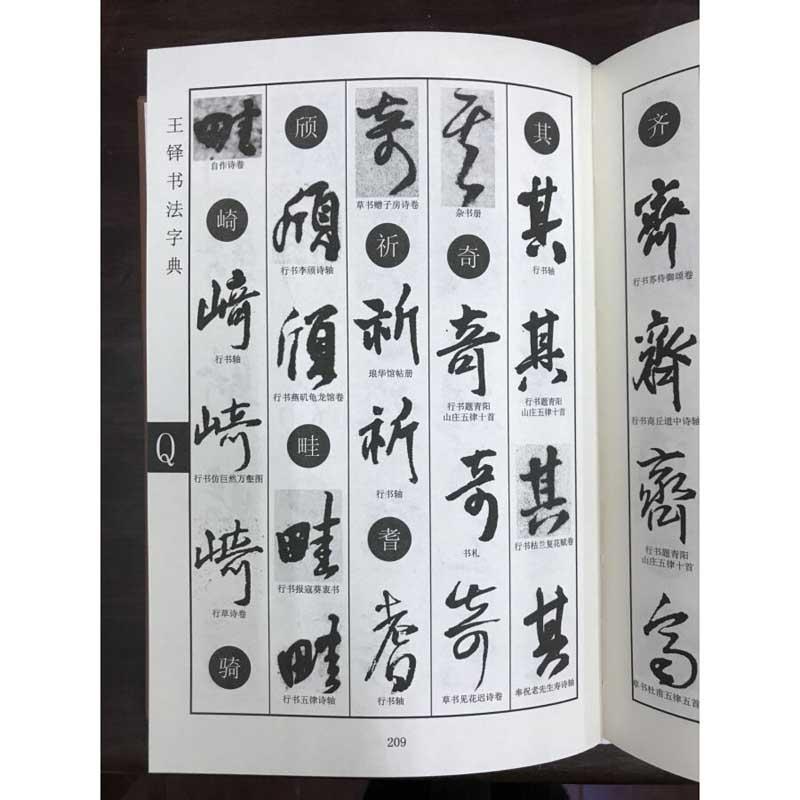 王铎书法字典
Q
其
其
行书轴
其
行书题青阳
山庄五律十首
其
行书枯兰复花赋卷
其
奉祝老先生寿诗轴
其
杂书册
奇
奇
行书题青阳
山庄五律十首
奇
书札
奇
草书见花迟诗卷
奇
草书赠子房诗卷
祈
祈
琅华馆帖册
祈
行书轴
耆
耆
行书轴
颀
頎
行书李颀诗轴
頎
行书燕矶龟龙馆卷
畦
畦
行书报寇葵衷书
畦
行书五律诗轴
畦
自作诗卷
崎
崎
行书轴
崎
行书仿巨然万壑图
崎
行草诗卷
骑
209
齐
齊
行书苏侍御颂卷
齊
行书商丘道中诗轴
齊
行书题青阳
山庄五律十首
草书杜甫五律五首